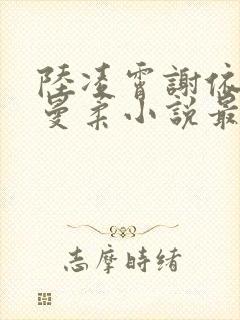 陸凌霄謝依
曼柔小說最
志摩時緒